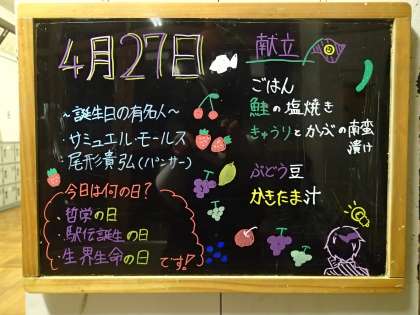 4月27日
~誕生日の有名人~
・サミュエル・モールス
・尾形貴弘(パンサー)
今日は何の日?
・哲学の日
・駅伝誕生の日
・生界生命の日
です!
献立
ごはん
鮭の塩焼き
きゅうりとかぶの南蛮
漬け
ぶどう豆
かきたま汁